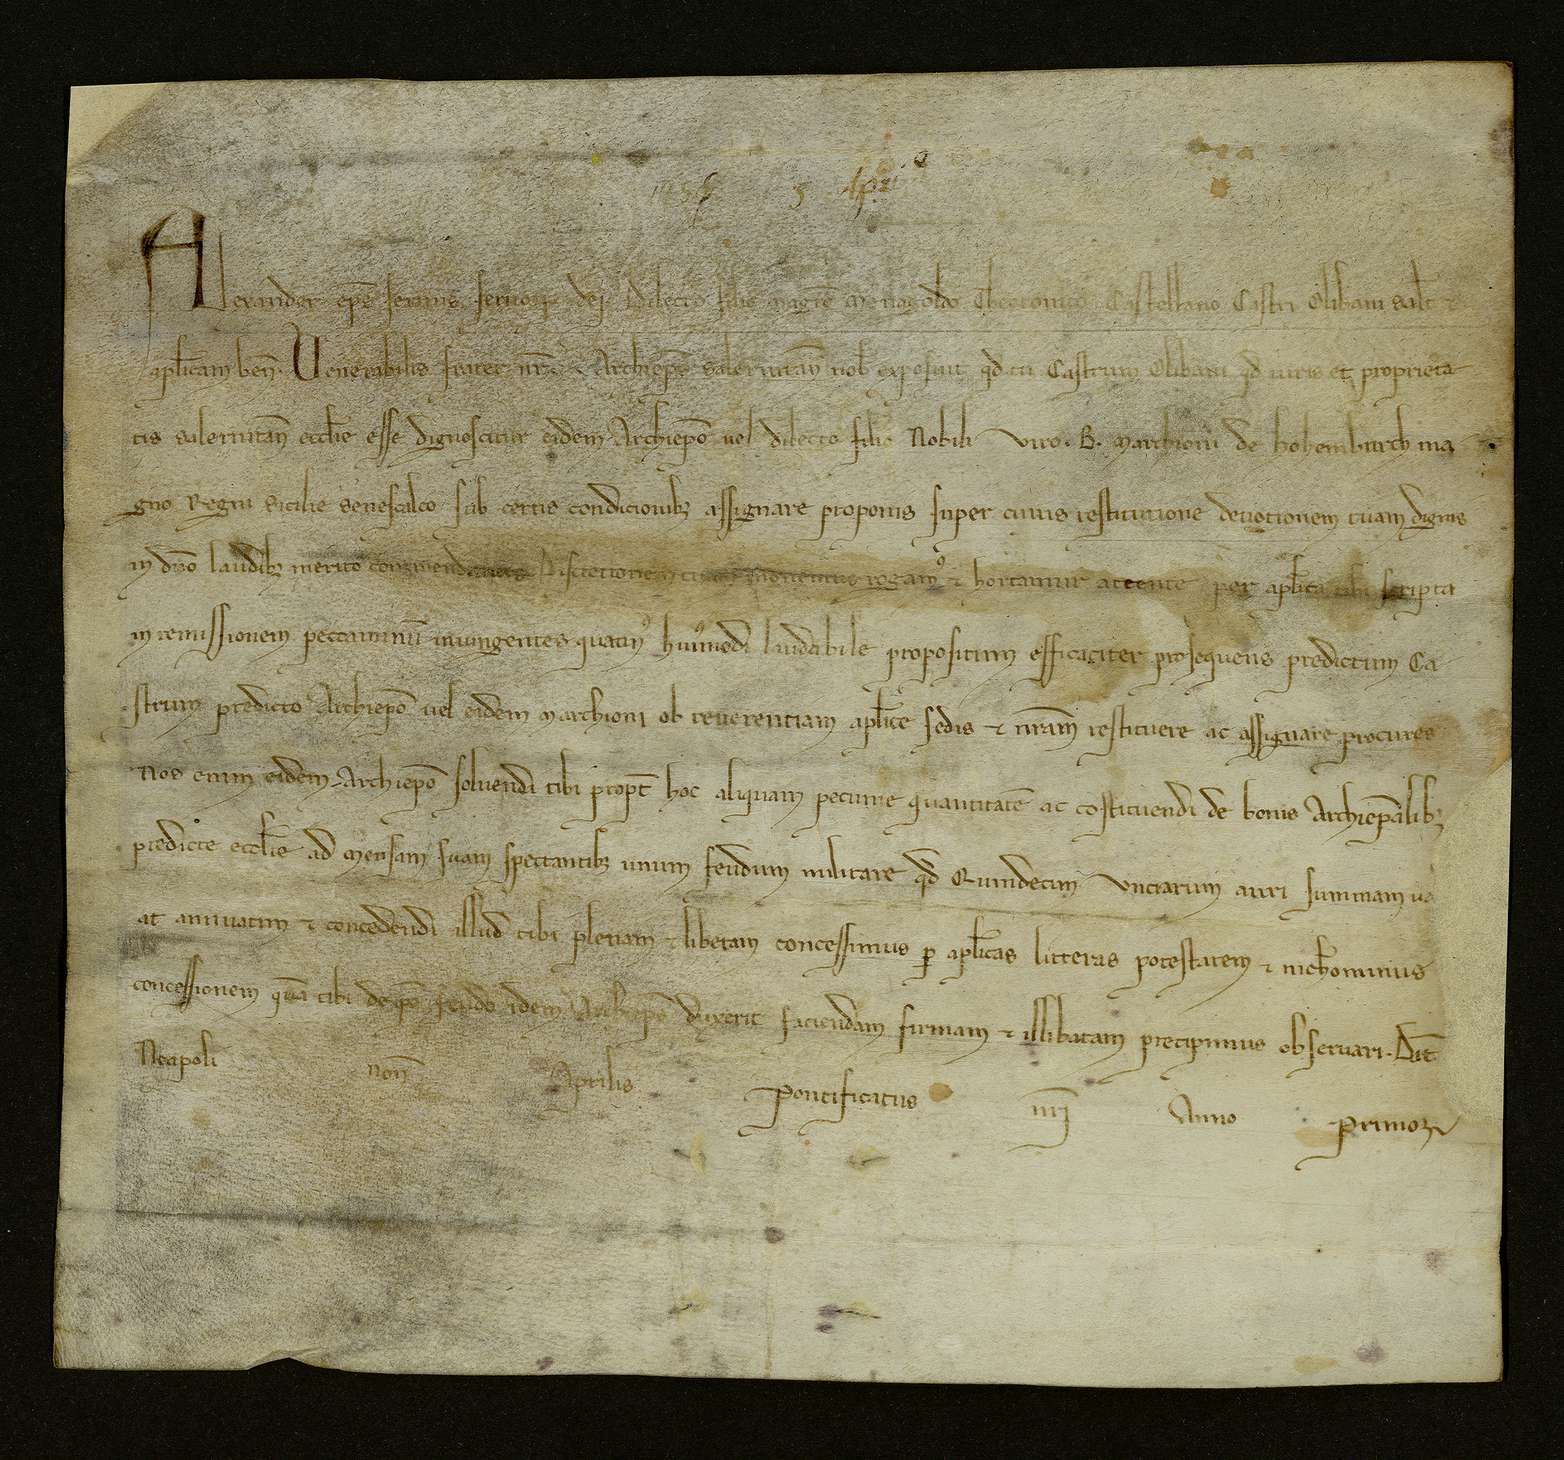 1255 5 Apri
Alexander ep̄s seruus seruoꝝ dei Dilecto filio Theotonico Castellano Castri Olibani salt̄ ⁊
ap̄licam ben̄. Venerabilis frater nr̄ Archiep̄s Salernitan̄ nob̄ exposuit qd̄ tu Castrum Olibani qd̄ iuris et proprieta
tis salernitan̄ eccl̄ie esse dignoscitur eidem Archiep̄o uel dilecto filio Nobili viro .B. Marchioni de hohemburch ma
gno Regni Sicilie Senescalco sub certis condicionibꝫ assignare proponis super cuius restitutione deuotionem tuam dignis
in dn̄o laudibꝫ merito commendantes Discretionem tuam monemus rogamꝰ ⁊ hortamur attente per ap̄lica tibi scripta
in remissionem peccaminū iniungentes quatinꝰ huiꝰmodi laudabile propositum efficaciter prosequens predictum Ca
strum predicto Archiep̄o uel eidem Marchioni ob reuerentiam ap̄lice sedis ⁊ nr̄am restituere ac assignare procures
Nos enim eidem Archiep̄o soluendi tibi propt̄ hoc aliquam pecunie quantitatē ac costituendi de bonis Archiep̄alibꝫ
predicte eccl̄ie ad mensam suam spectantibꝫ unum feudum militare qd̄ Quindecim Vnciarum auri summam ua
at annuatim ⁊ concedendi illud tibi plenam ⁊ liberam concessimus ꝑ ap̄licas litteras potestatem ⁊ nichominus
concessionem quā tibi de ip̄o feudo idem Archiep̄s duxerit faciendam firmam ⁊ illibatam precipimus obseruari. Dat̄
Neapoli non̄ Aprilis Pontificatus nr̄i Anno Primo